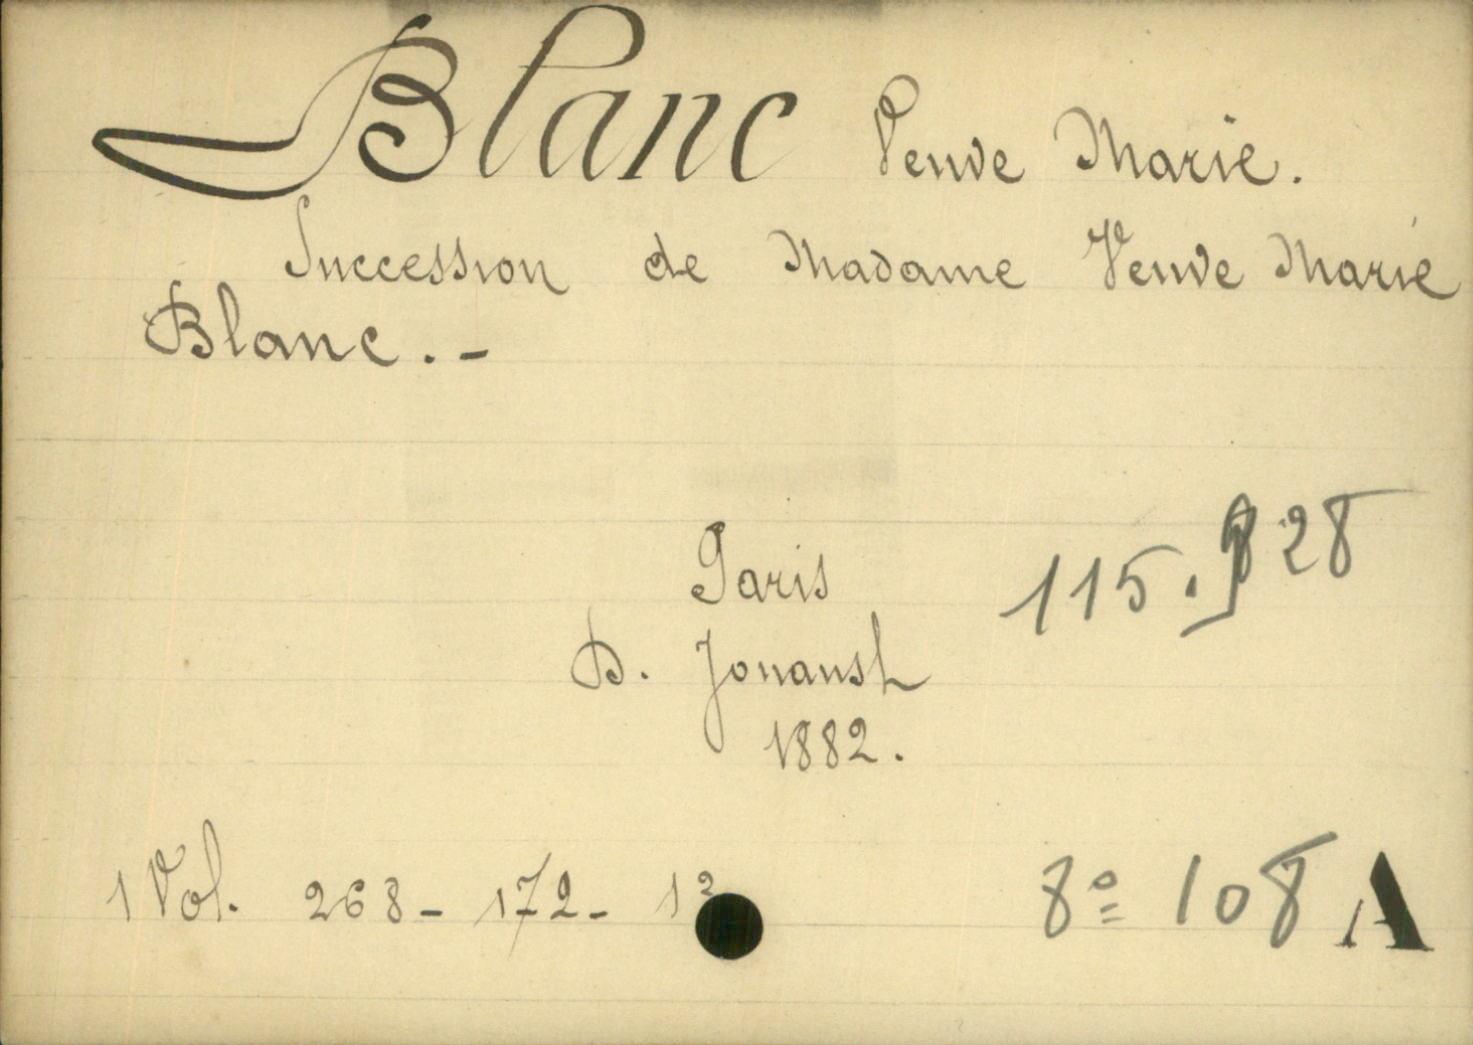 Blanc Veuve Marie.
Succession de Madame Veuve Marie
Blanc. -
Paris
115.928
D. Jouaust
1882.
1 Vol. 268 - 172 -
8º 108 A